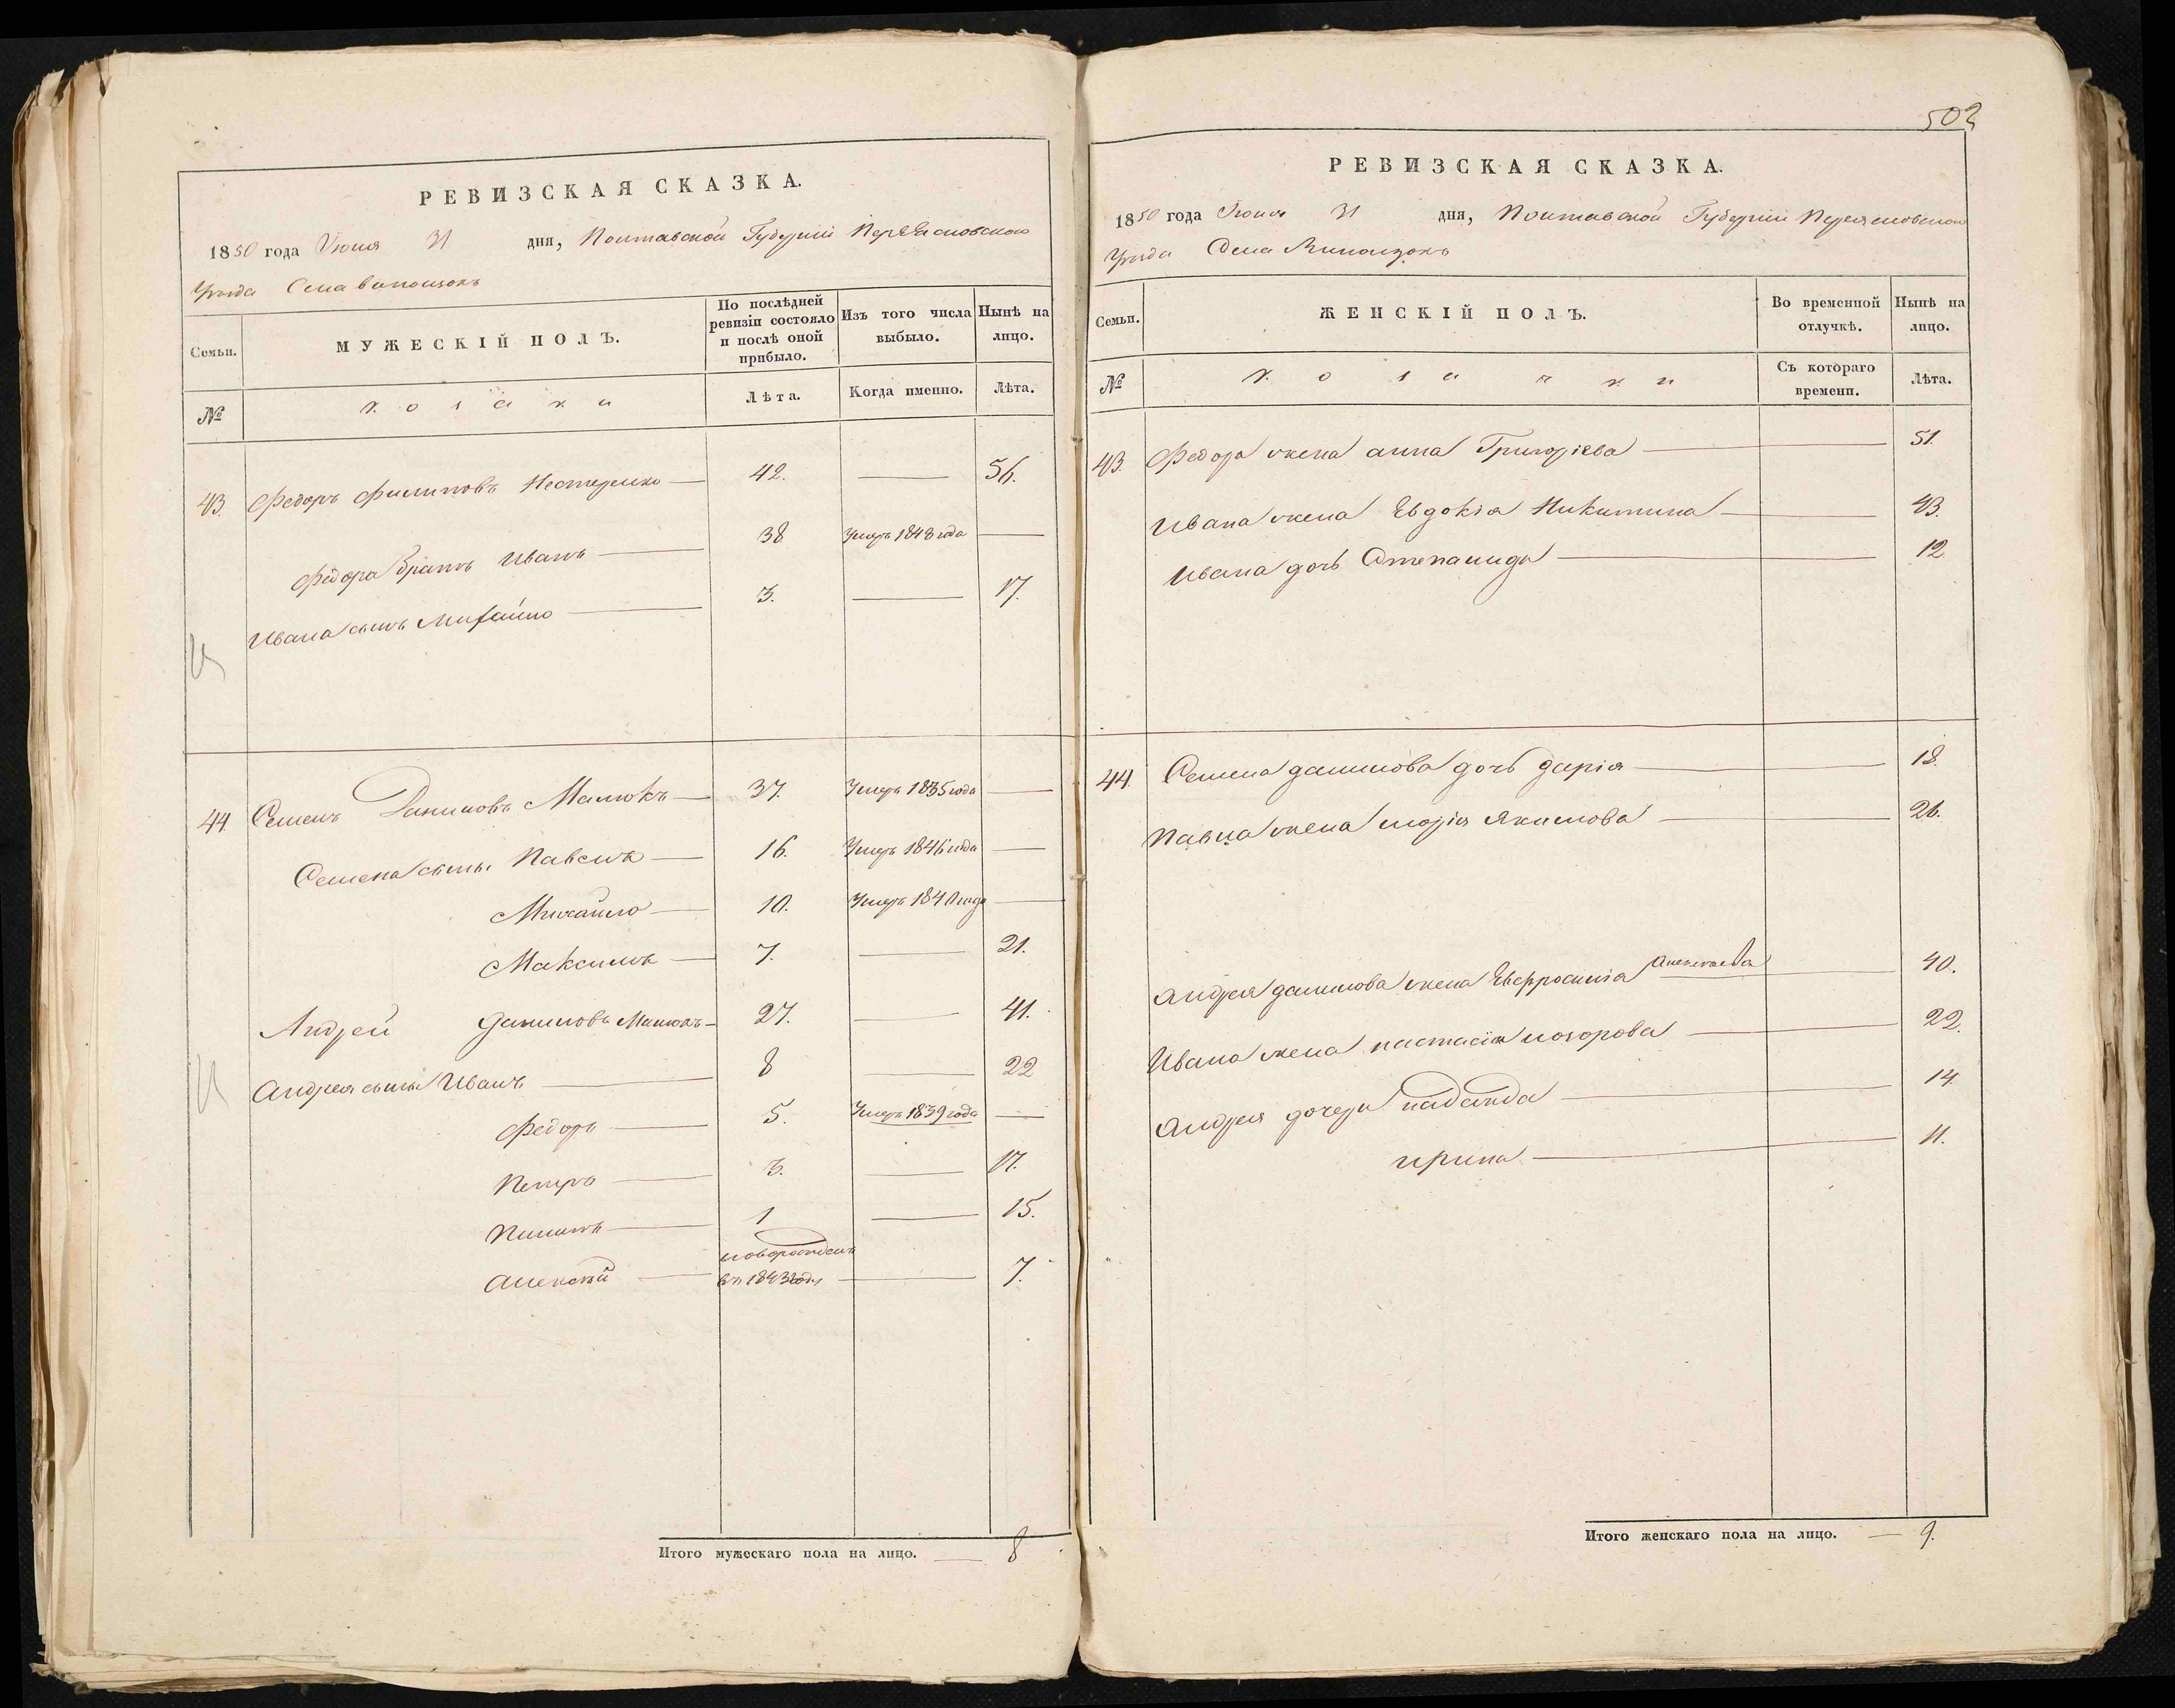 РЕВИЗСКАЯ СКАЗКА.
1850 года Июня 31 дня, Полтавской Губерніи Переясловского
Уезда Села
Семьи.
МУЖЕСКІЙ ПОЛЪ.
По послѣдней ревизіи состояло и послѣ оной прибыло.
Изъ того числа выбыло.
Нынѣ на лицо.
№
козаки
Лѣта.
Когда именно.
Лѣта.
43. Федоръ Филиповъ Нестеренко — 42. — 56.
Федора братъ Иванъ — 38 Умеръ 1848 года —
Ивана сынъ Михайло — 3. — 17.
44. Семенъ Даниловъ Малюкъ — 37. Умеръ 1835 года —
Семена сыны Павелъ — 16. Умеръ 1846 года —
Михайло — 10. Умеръ 1840 года —
Максимъ — 7. — 21.
Андрей Даниловъ Малюкъ — 27. — 41.
Андрея сыны Иванъ — 8 — 22
Федоръ — 5. Умеръ 1839 года —
Петръ — 3. — 17.
Пилипъ — 1 — 15.
новорожденъ
Алексѣй — въ 1843 годѣ — 7.
Итого мужескаго пола на лицо. — 8
503
РЕВИЗСКАЯ СКАЗКА.
1850 года Июня 31 дня, Полтавской Губерніи Переясловского
Уезда Села
Семьи.
ЖЕНСКІЙ ПОЛЪ.
Во временной отлучкѣ.
Нынѣ на лицо.
№
козачки
Съ котораго времени.
Лѣта.
43. Федора жена анна Григоріева — 51.
Ивана жена Евдокія Никитина — 43.
Ивана дочь Степанида — 12.
44. Семена данилова дочь дарія — 18.
Павла жена марія Якимова — 26.
Андрея данилова жена Евфросинія Алексеева — 40.
Ивана жена настасія — 22.
Андрея дочери — 14.
ирина — 11.
Итого женскаго пола на лицо. — 9.